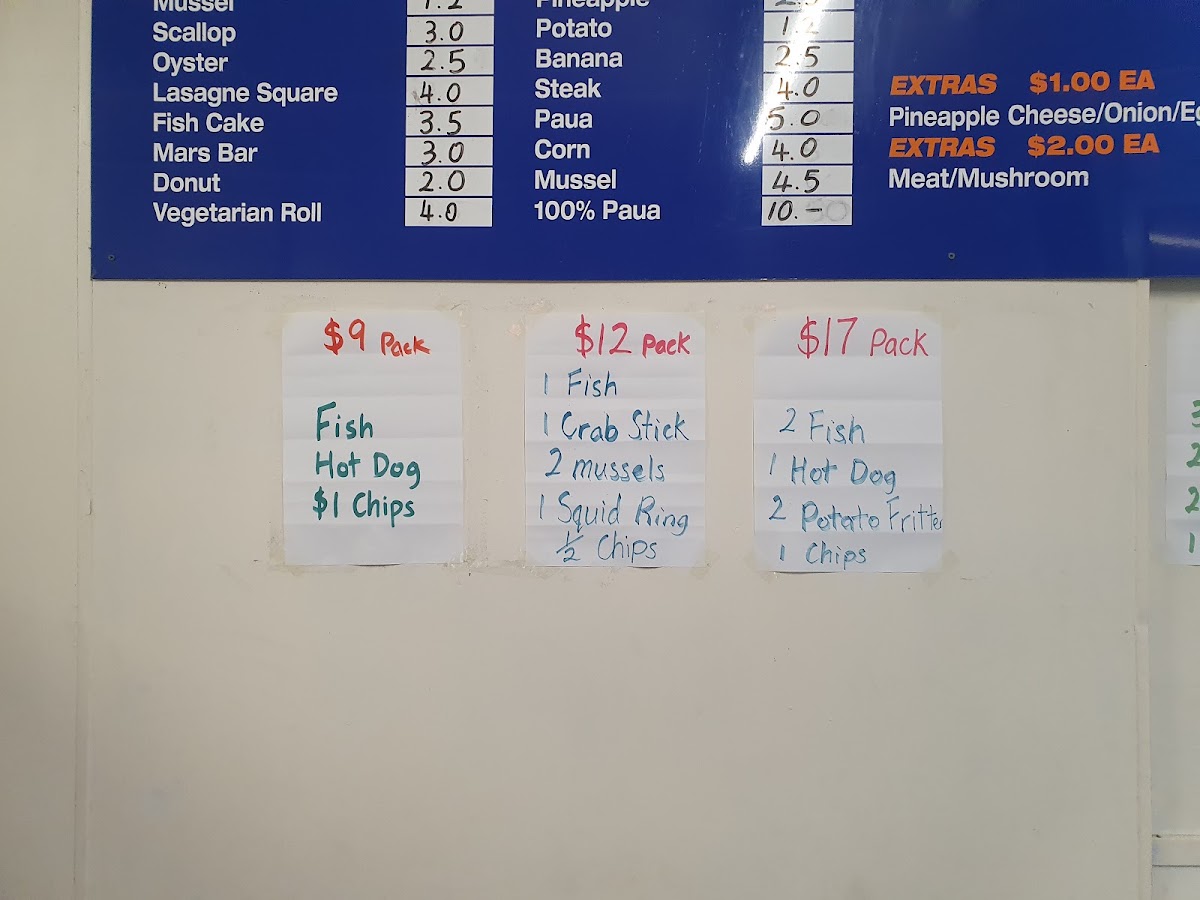 Mussel 1.2
Scallop 3.0
Oyster 2.5
Lasagne Square 4.0
Fish Cake 3.5
Mars Bar 3.0
Donut 2.0
Vegetarian Roll 4.0
Pineapple
Potato 1.2
Banana 2.5
Steak 4.0
Paua 5.0
Corn 4.0
Mussel 4.5
100% Paua 10.-
EXTRAS $1.00 EA
Pineapple Cheese/Onion/Eg
EXTRAS $2.00 EA
Meat/Mushroom
$9 Pack
Fish
Hot Dog
$1 Chips
$12 Pack
1 Fish
1 Crab Stick
2 mussels
1 Squid Ring
1/2 Chips
$17 Pack
2 Fish
1 Hot Dog
2 Potato Fritter
1 Chips
3
2
2
1